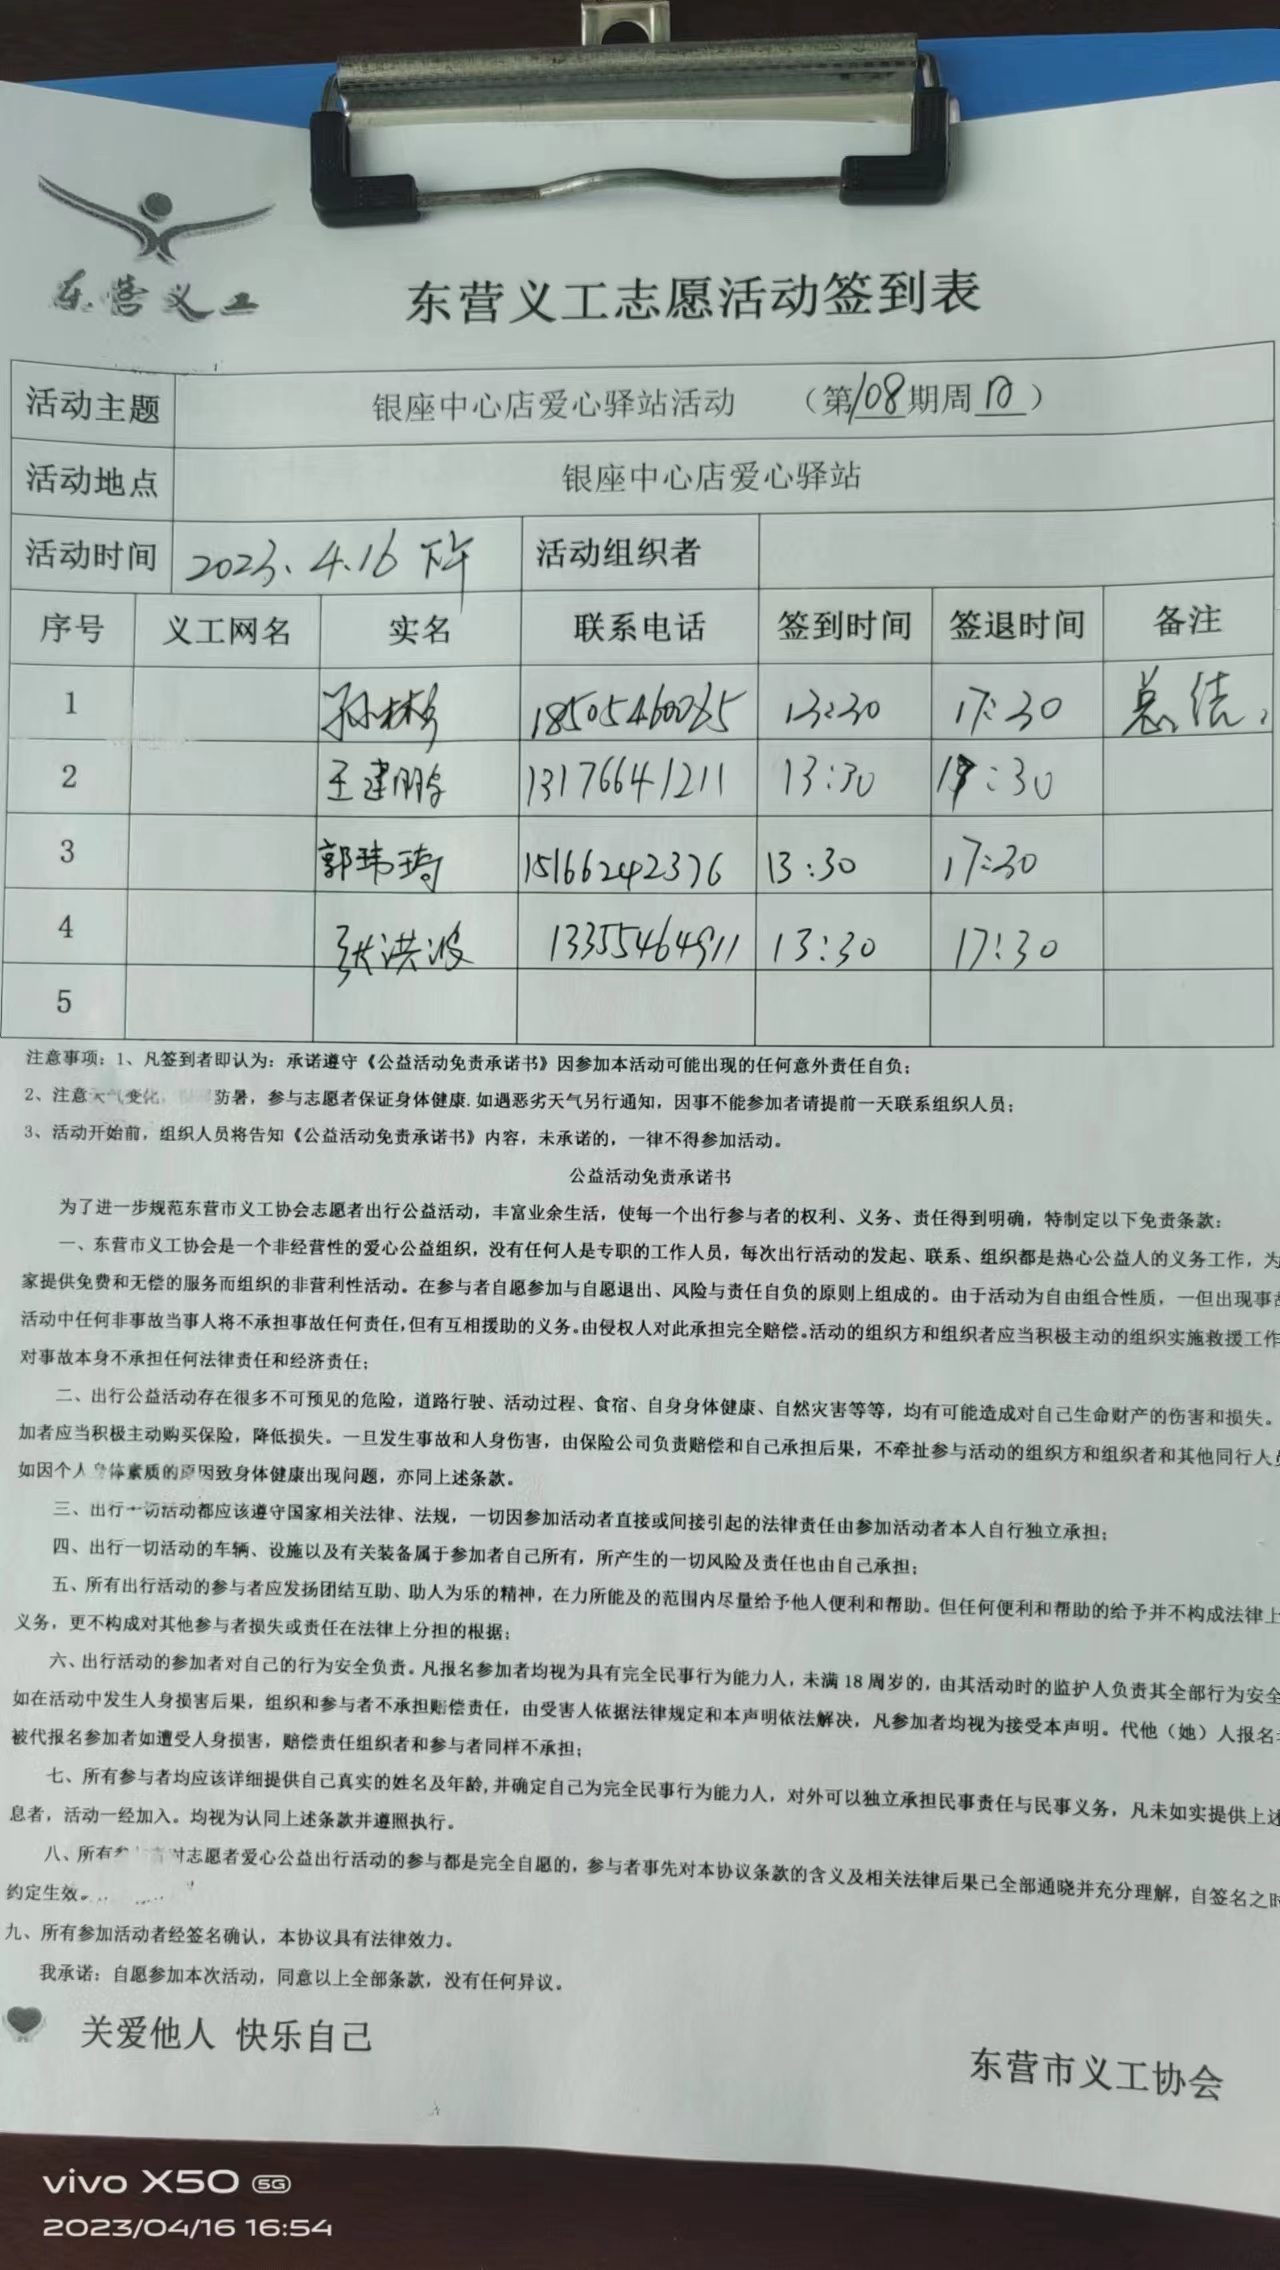 东营义工
东营义工志愿活动签到表
活动主题 银座中心店爱心驿站活动 （第108期周日）
活动地点 银座中心店爱心驿站
活动时间 2023.4.16 下午 活动组织者
序号 义工网名 实名 联系电话 签到时间 签退时间 备注
1 孙彬 18505460085 13:30 17:30 总结
2 王建鹏 13176641211 13:30 17:30
3 郭玮琦 15166242376 13:30 17:30
4 张洪波 13355464911 13:30 17:30
5
注意事项：1、凡签到者即认为：承诺遵守《公益活动免责承诺书》因参加本活动可能出现的任何意外责任自负；
2、注意天气变化，防暑，参与志愿者保证身体健康.如遇恶劣天气另行通知，因事不能参加者请提前一天联系组织人员；
3、活动开始前，组织人员将告知《公益活动免责承诺书》内容，未承诺的，一律不得参加活动。
公益活动免责承诺书
为了进一步规范东营市义工协会志愿者出行公益活动，丰富业余生活，使每一个出行参与者的权利、义务、责任得到明确，特制定以下免责条款：
一、东营市义工协会是一个非经营性的爱心公益组织，没有任何人是专职的工作人员，每次出行活动的发起、联系、组织都是热心公益人的义务工作，为
家提供免费和无偿的服务而组织的非营利性活动。在参与者自愿参加与自愿退出、风险与责任自负的原则上组成的。由于活动为自由组合性质，一但出现事故
活动中任何非事故当事人将不承担事故任何责任,但有互相援助的义务。由侵权人对此承担完全赔偿。活动的组织方和组织者应当积极主动的组织实施救援工作
对事故本身不承担任何法律责任和经济责任；
二、出行公益活动存在很多不可预见的危险，道路行驶、活动过程、食宿、自身身体健康、自然灾害等等，均有可能造成对自己生命财产的伤害和损失。
加者应当积极主动购买保险，降低损失。一旦发生事故和人身伤害，由保险公司负责赔偿和自己承担后果，不牵扯参与活动的组织方和组织者和其他同行人员
如因个人身体素质的原因致身体健康出现问题，亦同上述条款。
三、出行一切活动都应该遵守国家相关法律、法规，一切因参加活动者直接或间接引起的法律责任由参加活动者本人自行独立承担；
四、出行一切活动的车辆、设施以及有关装备属于参加者自己所有，所产生的一切风险及责任也由自己承担；
五、所有出行活动的参与者应发扬团结互助、助人为乐的精神，在力所能及的范围内尽量给予他人便利和帮助。但任何便利和帮助的给予并不构成法律上
义务，更不构成对其他参与者损失或责任在法律上分担的根据；
六、出行活动的参加者对自己的行为安全负责。凡报名参加者均视为具有完全民事行为能力人，未满18周岁的，由其活动时的监护人负责其全部行为安全
如在活动中发生人身损害后果，组织和参与者不承担赔偿责任，由受害人依据法律规定和本声明依法解决，凡参加者均视为接受本声明。代他（她）人报名者
被代报名参加者如遭受人身损害，赔偿责任组织者和参与者同样不承担；
七、所有参与者均应该详细提供自己真实的姓名及年龄,并确定自己为完全民事行为能力人，对外可以独立承担民事责任与民事义务，凡未如实提供上述
息者，活动一经加入。均视为认同上述条款并遵照执行。
八、所有参对志愿者爱心公益出行活动的参与都是完全自愿的，参与者事先对本协议条款的含义及相关法律后果已全部通晓并充分理解，自签名之时
约定生效。
九、所有参加活动者经签名确认，本协议具有法律效力。
我承诺：自愿参加本次活动，同意以上全部条款，没有任何异议。
关爱他人 快乐自己
东营市义工协会
vivo X50 5G
2023/04/16 16:54